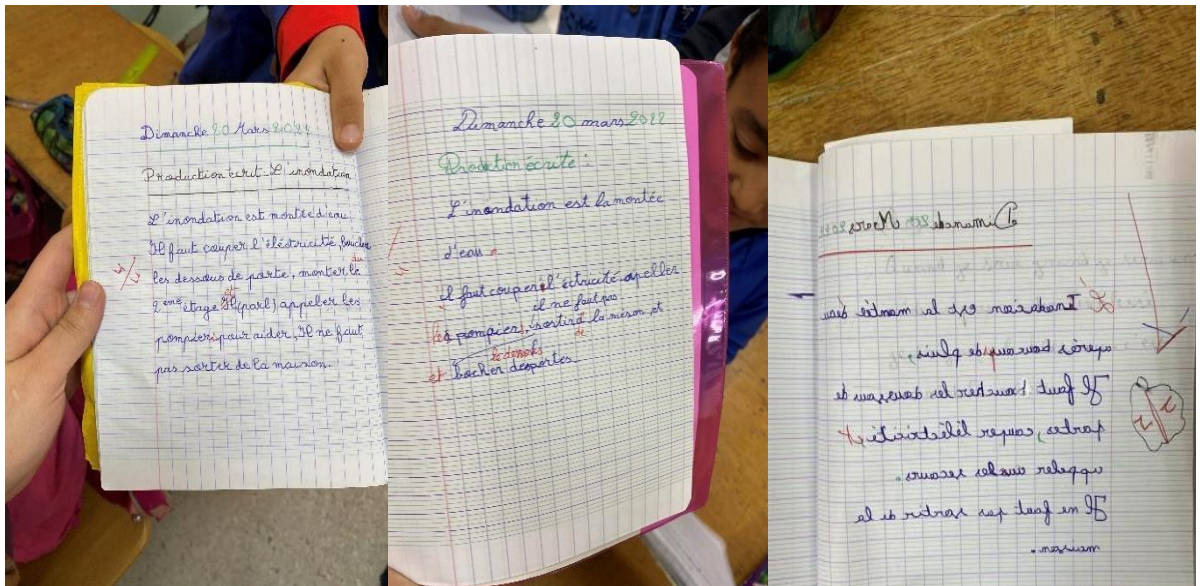 Dimanche 20 Mars 2022
Production écrit : L'inondation
L'inondation est montée d'eau
Il faut couper l'éléctricité, boucher
les dessous de porte, monter le
du
2ème étage Il (parl) appeler les
et
pompiers pour aider, Il ne faut
pas sortir de la maison.
Dimanche 20 mars 2022
Production écrite :
L'inondation est la montée
d'eau.
il faut couper l'éctricité, apeller
il ne faut pas
les pompiers, sortir la meson et
de
le dessous
et bocher des portes
Dimanche 20 Mars 2022
L'Inondasion est la montée deau
aprés boucoup de pluis.
Il faut boucher les doussou de
portes, couper léléctricité et
appeler aux les secours.
Il ne faut pas sortir de la
maison.